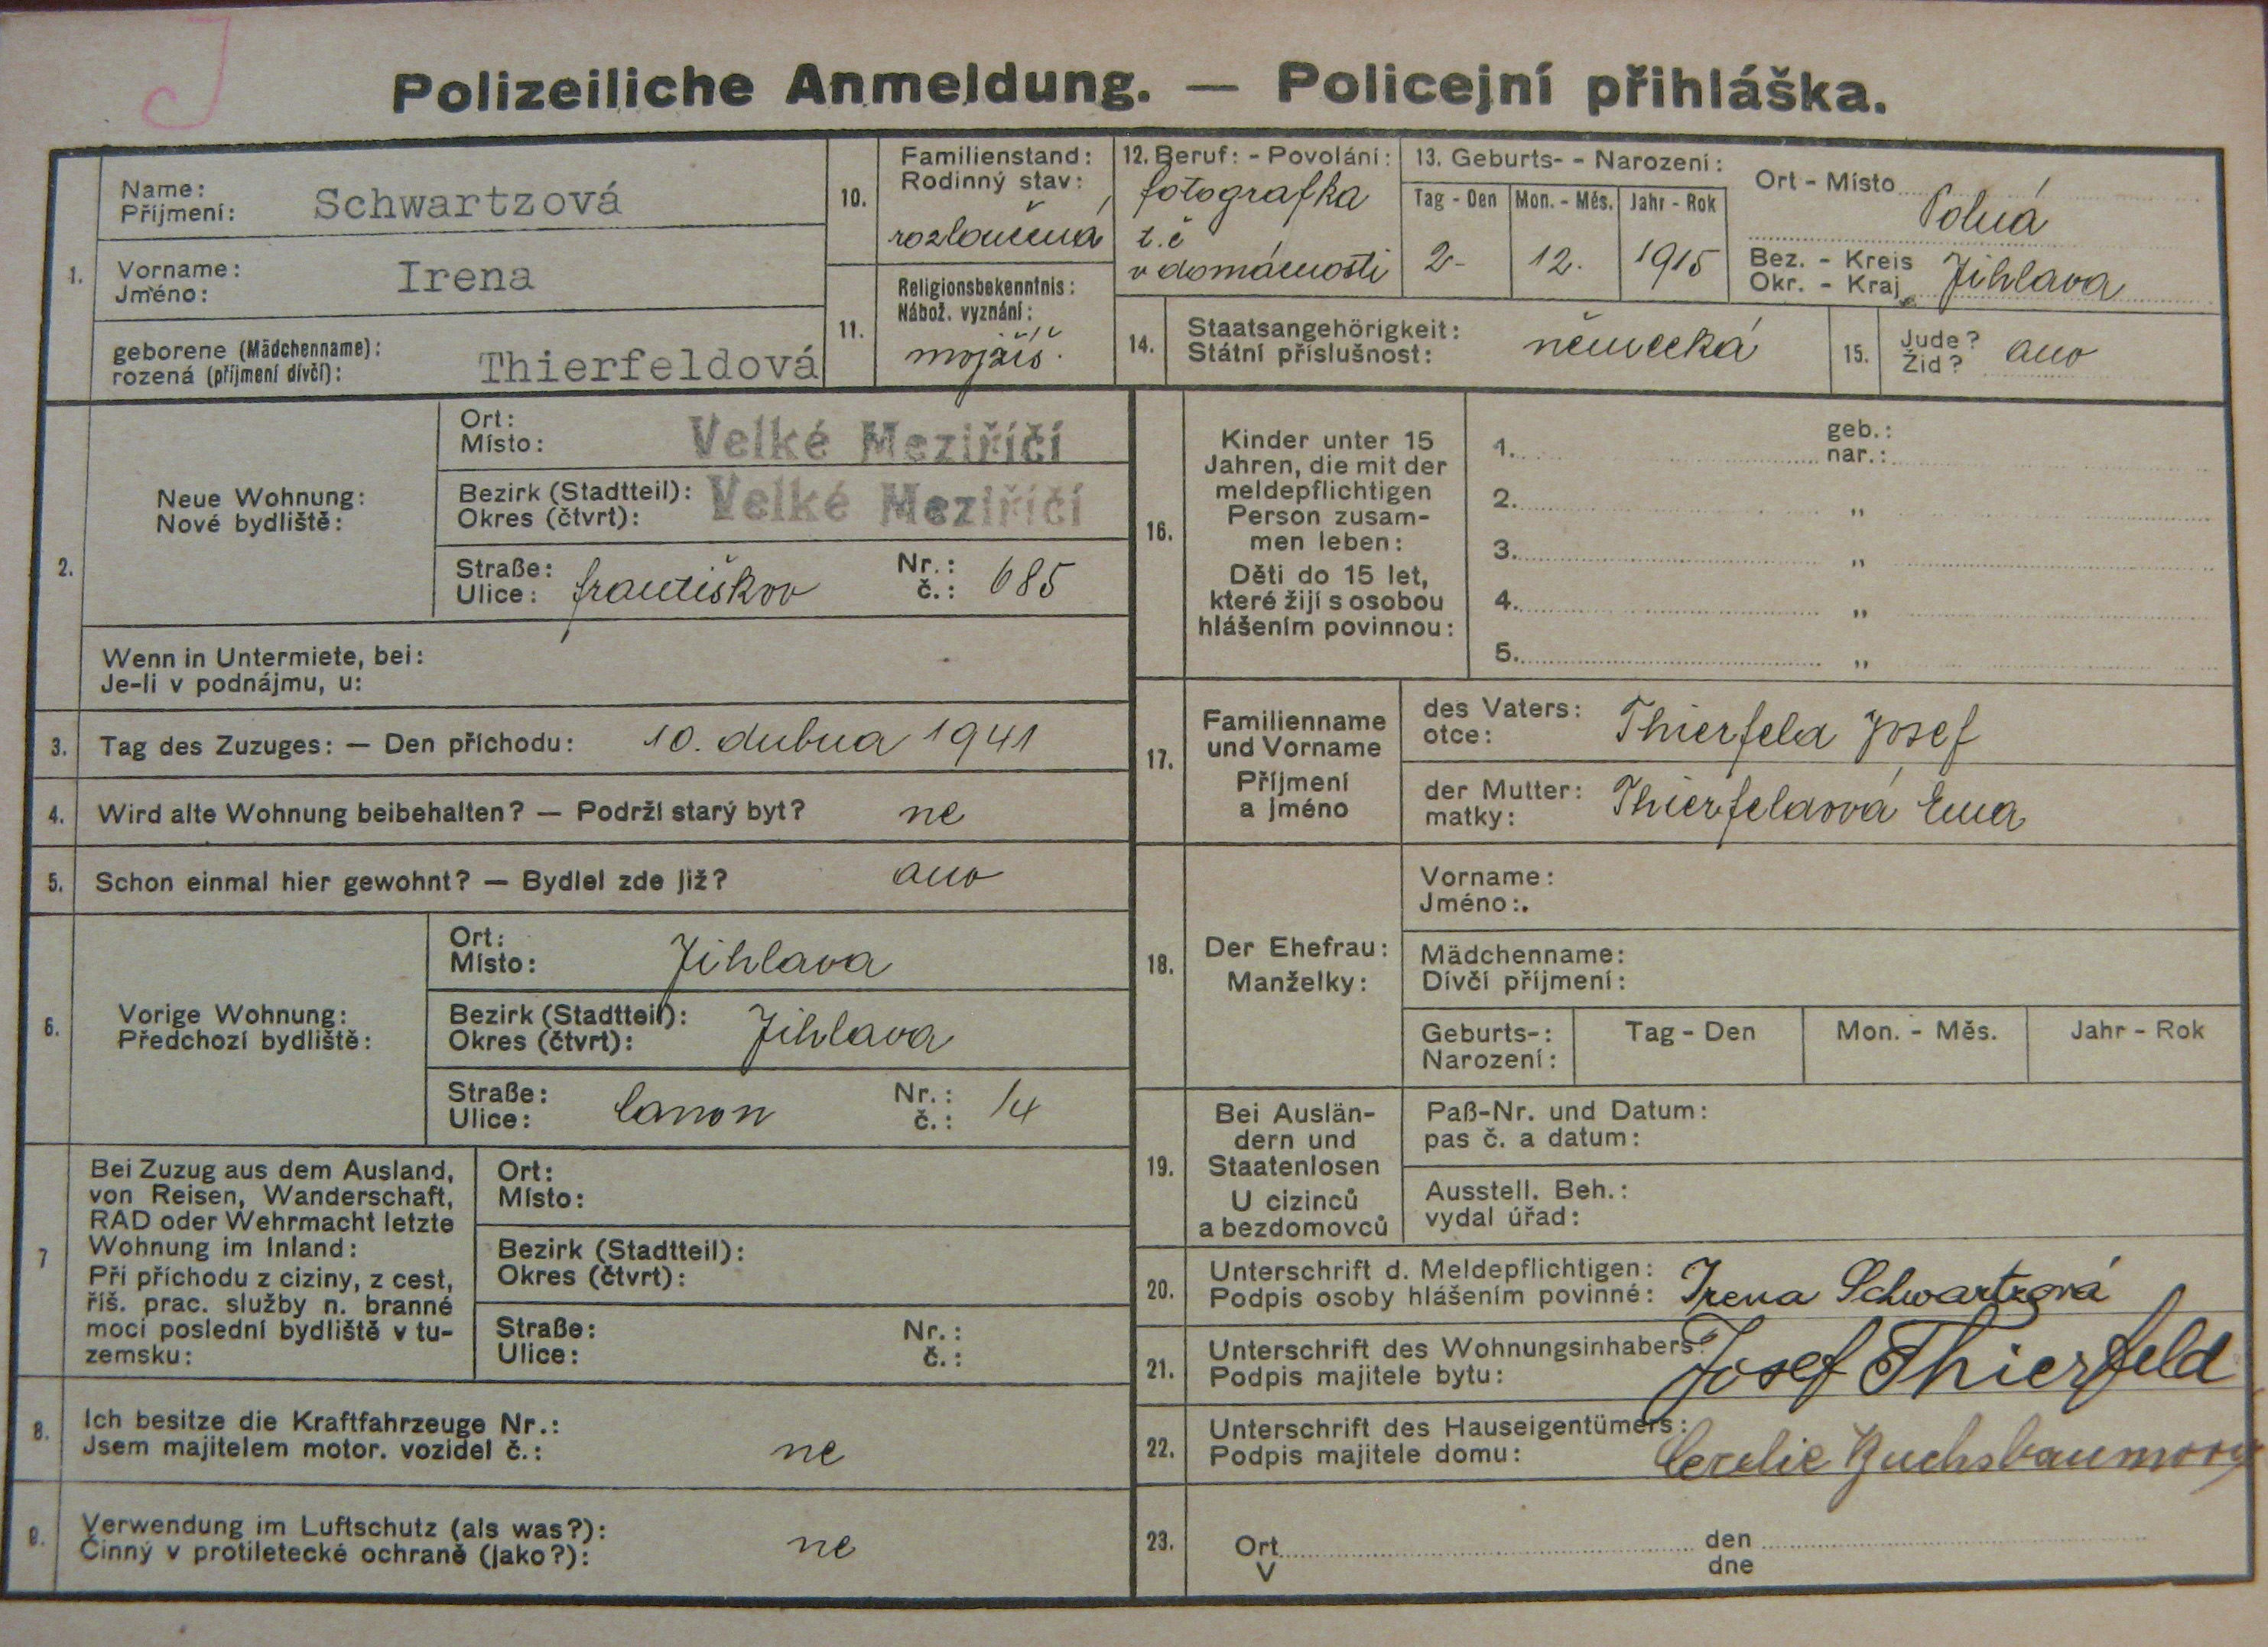 J
Polizeiliche Anmeldung. — Policejní přihláška.
1.
Name:
Příjmení: Schwartzová
Vorname:
Jméno: Irena
geborene (Mädchenname):
rozená (příjmení dívčí): Thierfeldová
10.
Familienstand:
Rodinný stav:
rozloučená
11.
Religionsbekenntnis:
Nábož. vyznání:
mojžíš.
12. Beruf: - Povolání:
fotografka
t.č
v domácnosti
13. Geburts- - Narození:
Tag - Den Mon. - Měs. Jahr - Rok
2. 12. 1915
Ort - Místo
Polná
Bez. - Kreis
Okr. - Kraj Jihlava
14.
Staatsangehörigkeit:
Státní příslušnost: německá
15.
Jude?
Žid? ano
2.
Neue Wohnung:
Nové bydliště:
Ort:
Místo: Velké Meziříčí
Bezirk (Stadtteil):
Okres (čtvrt): Velké Meziříčí
Straße:
Ulice: františkov
Nr.:
č.: 685
Wenn in Untermiete, bei:
Je-li v podnájmu, u:
3. Tag des Zuzuges: — Den příchodu: 10. dubna 1941
4. Wird alte Wohnung beibehalten? — Podrží starý byt? ne
5. Schon einmal hier gewohnt? — Bydlel zde již? ano
6.
Vorige Wohnung:
Předchozí bydliště:
Ort:
Místo: Jihlava
Bezirk (Stadtteil):
Okres (čtvrt): Jihlava
Straße:
Ulice:
Nr.:
č.: 14
7
Bei Zuzug aus dem Ausland,
von Reisen, Wanderschaft,
RAD oder Wehrmacht letzte
Wohnung im Inland:
Při příchodu z ciziny, z cest,
říš. prac. služby n. branné
moci poslední bydliště v tu-
zemsku:
Ort:
Místo:
Bezirk (Stadtteil):
Okres (čtvrt):
Straße:
Ulice:
Nr.:
č.:
8.
Ich besitze die Kraftfahrzeuge Nr.:
Jsem majitelem motor. vozidel č.: ne
9.
Verwendung im Luftschutz (als was?):
Činný v protiletecké ochraně (jako?): ne
16.
Kinder unter 15
Jahren, die mit der
meldepflichtigen
Person zusam-
men leben:
Děti do 15 let,
které žijí s osobou
hlášením povinnou:
1. geb.:
nar.:
2. „
3. „
4. „
5. „
17.
Familienname
und Vorname
Příjmení
a jméno
des Vaters:
otce: Thierfeld Josef
der Mutter:
matky: Thierfeldová Ema
18.
Der Ehefrau:
Manželky:
Vorname:
Jméno:.
Mädchenname:
Dívčí příjmení:
Geburts-:
Narození:
Tag - Den Mon. - Měs. Jahr - Rok
19.
Bei Auslän-
dern und
Staatenlosen
U cizinců
a bezdomovců
Paß-Nr. und Datum:
pas č. a datum:
Ausstell. Beh.:
vydal úřad:
20.
Unterschrift d. Meldepflichtigen:
Podpis osoby hlášením povinné: Irena Schwartzová
21.
Unterschrift des Wohnungsinhabers:
Podpis majitele bytu: Josef Thierfeld
22.
Unterschrift des Hauseigentümers:
Podpis majitele domu:
23.
Ort den
V dne